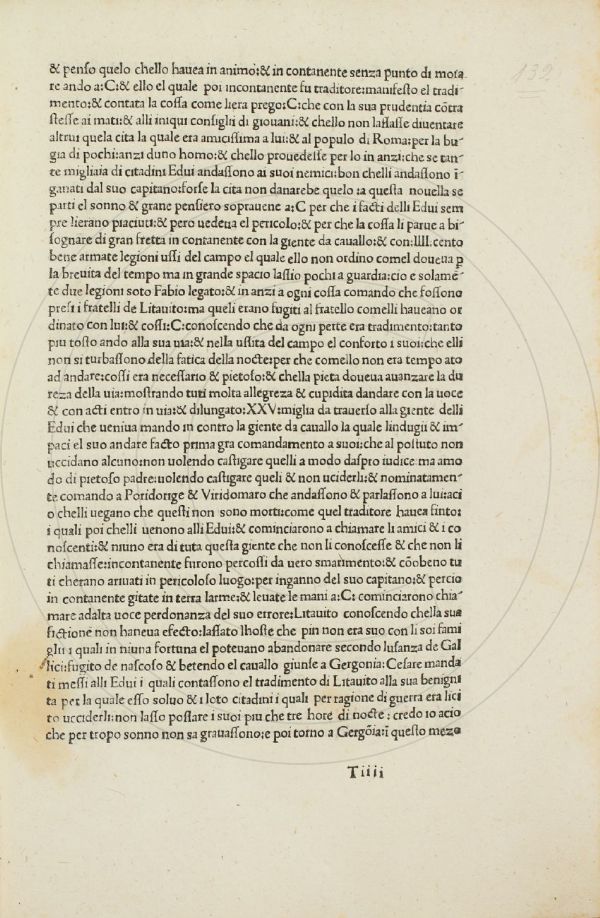 132
& penso quelo chello hauea in animo:& in contanente senza punto di mora
re ando a:C:& ello el quale poi incontanente fu traditore:manifesto el tradi-
mento:& contata la cossa come liera prego:C:che con la sua prudentia cōtra
stesse ai mati:& alli iniqui consigli di giouani:& chello non lassasse diuentare
altrui quela cita la quale era amicissima a lui:& al populo di Roma:per la bu-
gia di pochi:anzi duno homo:& chello prouedesse per lo in anzi:che se tan-
te migliaia di citadini Edui andassono ai suoi nemici:bon chelli andassono ī-
ganati dal suo capitano:forse la cita non danarebe quelo :a questa nouella se
parti el sonno & graue pensiero soprauene a:C per che i facti delli Edui sem
pre lierano piaciuti:& pero uedeua el pericolo:& per che la cossa li parue a bi-
sognare di gran fretta in contanente con la giente da cauallo:& con:IIII.cento
bene armate legioni ussi del campo el quale ello non ordino comel doueua p
la breuita del tempo ma in grande spacio lassio pochi a guardia:cio e solamē-
te due legioni soto Fabio legato:& in anzi a ogni cossa comando che fossono
presi i fratelli de Litauito:ma queli erano fugiti al fratello comelli haueano or
dinato con lui:& cossi:C:conoscendo che da ogni perte era tradimento:tanto
piu tosto ando alla sua uia:& nella ussita del campo el conforto i suoi:che elli
non si turbassono della fatica della nocte:per che comello non era tempo ato
ad andare:cossi era necessario & pietoso:& chella pieta doueua auanzare la du
reza della uia:mostrando tuti molta allegreza & cupidita dandare con la uoce
& con acti entro in uia:& dilungato:XXV:miglia da trauerso alla giente delli
Edui che ueniua mando in contro la giente da cauallo la quale lindugii & im-
paci el suo andare facto prima gra comandamento a suoi:che al postuto non
uccidano alcuno:non uolendo castigare quelli a modo daspro iudice:ma a mo
do di pietoso padre:uolendo castigare queli & non uciderli:& nominatamen-
te comando a Poridorige & Viridomaro che andassono & parlassono a lui:aci
o chelli uegano che questi non sono morti:come quel traditore hauea finto:
i quali poi chelli uenono alli Edui:& cominciarono a chiamare li amici & i co
noscenti:& niuno era di tuta questa giente che non li conoscesse & che non li
chiamasse:incontanente furono percossi da uero smarimento:& cōobeno tu
ti cherano ariuati in pericoloso luogo:per inganno del suo capitano:& percio
in contanente gitate in terra larme:& leuate le mani a:C: cominciarono chia-
mare adalta uoce perdonanza del suo errore:Litauito conoscendo chella sua
fictione non haneua efecto:lassato lhoste che pin non era suo con li soi fami
glii i quali in niuna fortuna el poteuano abandonare secondo lusanza de Gal
lici:fugito de nascoso & betendo el cauallo giunse a Gergonia:Cesare manda
ti messi alli Edui i quali contassono el tradimento di Litauito alla sua benigni
ta per la quale esso soluo & i loto citadini i quali per ragione di guerra era lici
to ucciderli:non lasso possare i suoi piu che tre hore di nocte: credo io acio
che per tropo sonno non sa grauassono:e poi torno a Gergōia:ī questo mezo
Tiiii